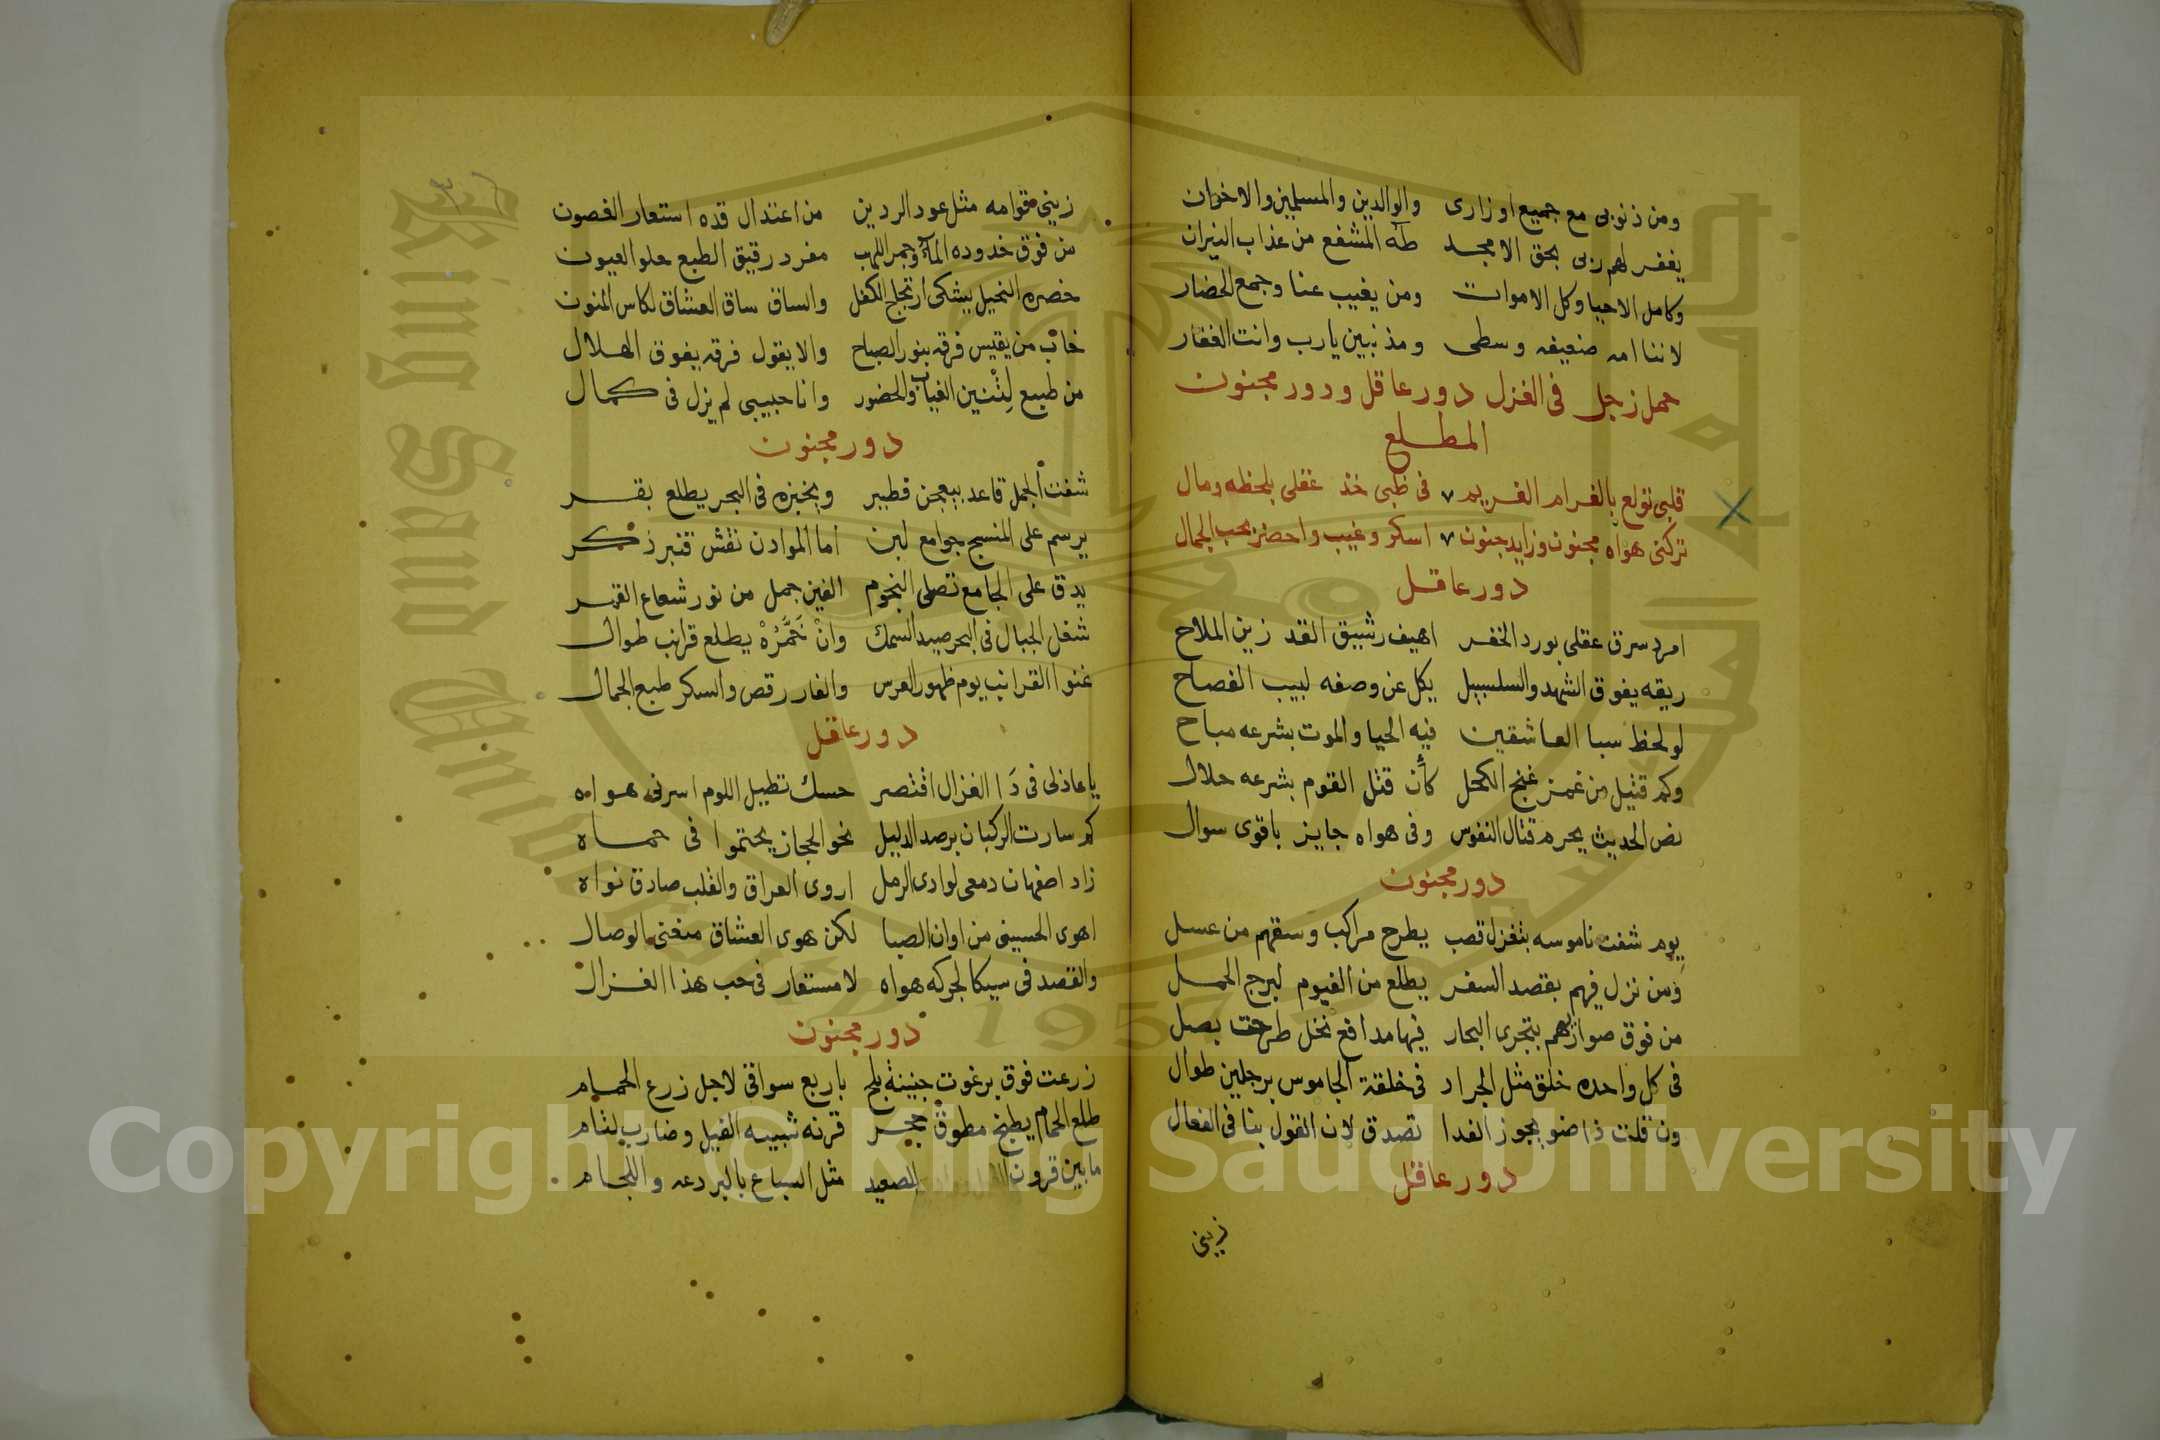 ومن ذنوبى مع جميع اوزارى والوالدين والمسلمين والاخوان
يغفر لهم ربى بحق الامجد طه المشفع من عذاب النيران
وكامل الاحيا وكل الاموات ومن يغيب عنا وجمع الحضار
لاننا امه ضعيفه وسطى ومذنبين يارب وانت الغفار
حمل زجل فى الغزل دور عاقل ودور مجنون
المطلع
قلبى تولع بالغرام الغريم فى ظبى خذ عقلى بلحظه ومال
تركنى هواه مجنون وزايد جنون اسكر وغيب واحضر بحب الجمال
دور عاقل
امرد سرق عقلى بورد الخفر اهيف رشيق القد زين الملاح
ريقه يفوق الشهد والسلسبيل يكل عن وصفه لبيب الفصاح
لو لحظ سبا العاشقين فيه الحيا والموت بشرعه مباح
وكم قتيل من غمز غنج الكحل كأن قتل القوم بشرعه حلال
نص الحديث يحرم قتال النفوس وفى هواه جايز باقوى سوال
دور مجنون
يوم شفت ناموسه بتغزل قصب يطرح مراكب وسقهم من عسل
ومن نزل فيهم بقصد السفر يطلع من الفيوم لبرج الحمل
من فوق صواريهم بتجرى البحار فيها مدافع نخل طرحت بصل
فى كل واحده خلق مثل الجراد فى خلقة الجاموس برجلين طوال
ون قلت ذا ضنو يجوز الغدا تصدق لان القول بنا فى الفعال
دور عاقل
زينى
زينى قوامه مثل عود الردين من اعتدال قده استعار الغصون
من فوق خدوده المآ وجمر اللهب مفرد رقيق الطبع حلو العيون
خصره النحيل بيشكى ارتجاج الكفل والساق ساق العشاق لكاس المنون
خاب من يقيس فرقه بنور الصباح والا يقول فرقه يفوق الهلال
من طبيع لتنين الغياب والحضور وانا حبيبى لم يزل فى كمال
دور مجنون
شفت الجمل قاعد بيعجن فطير وبخبزه فى البحر يطلع بقر
يرسم على المنسج جوامع لبن اما الموادن نقش قنبر ذكر
يدق على الجامع تصلى النجوم الفين جمل من نور شعاع القمر
شغل الجبال فى البحر صيد السمك وان خمره يطلع قرانب طوال
غنوا القرانب يوم ظهور العرس والفار رقص والسكر طبع الجمال
دور عاقل
يا عاذلى فى دا الغزال اقتصر حسك تطيل اللوم اسرنى هواه
كم سارت الركبان برصد الدليل نحو الحجاز يحتموا فى حماه
زاد اصفهان دمعى لوادى الرمل اروى العراق والقلب صادق نواه
اهوى الحسينى من اوان الصبا لكن هوى العشاق منعنى الوصال
والقصد فى سيكا لجركه هواه لا مستعار فى حب هذا الغزال
دور مجنون
زرعت فوق برغوت جنينة بلح باربع سواقى لاجل زرع الحمام
طلع الحمام يطبخ مطوق بحجر قرنه شبيه الفيل وضارب لثام
ما بين قرون الصعيد مثل السباع بالبردعه واللجام
King Saud University
1957
Copyright © King Saud University